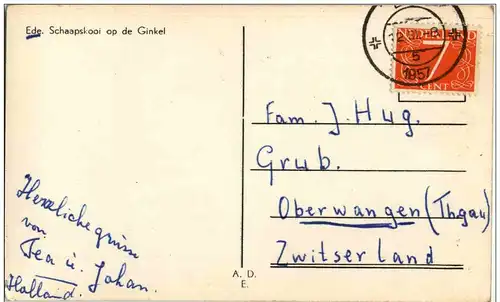 Ede. Schaapskooi op de Ginkel
NEDERLAND
7
CENT
5
1957
Fam. J. Hug.
Grub.
Oberwangen (Thgau)
Zwitserland
Herzliche
von
Tea u. Johan.
Holland.
A. D.
E.